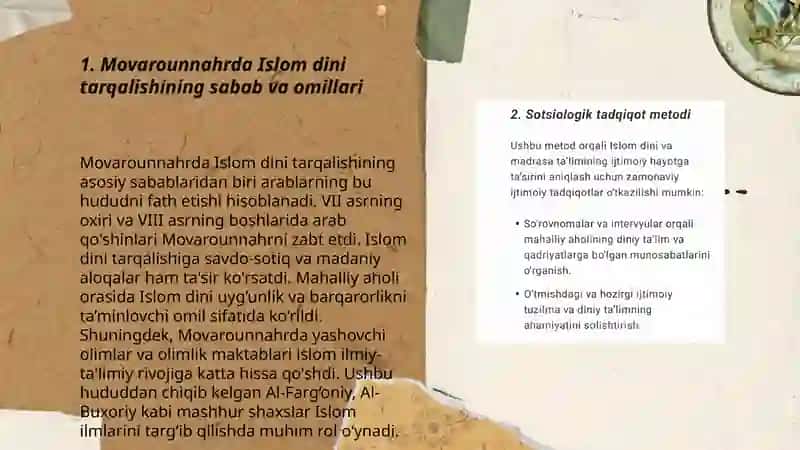 1. Movarounnahrda Islom dini
tarqalishining sabab va omillari
Movarounnahrda Islom dini tarqalishining
asosiy sabablaridan biri arablarning bu
hududni fath etishi hisoblanadi. VII asrning
oxiri va VIII asrning boshlarida arab
qo'shinlari Movarounnahrni zabt etdi. Islom
dini tarqalishiga savdo-sotiq va madaniy
aloqalar ham ta'sir ko'rsatdi. Mahalliy aholi
orasida Islom dini uyg'unlik va barqarorlikni
ta'minlovchi omil sifatida ko'rildi.
Shuningdek, Movarounnahrda yashovchi
olimlar va olimlik maktablari islom ilmiy-
ta'limiy rivojiga katta hissa qo'shdi. Ushbu
hududdan chiqib kelgan Al-Farg'oniy, Al-
Buxoriy kabi mashhur shaxslar Islom
ilmlarini targ'ib qilishda muhim rol o'ynadi.
2. Sotsialogik tadqiqot metodi
Ushbu metod orqali Islom dini va
madrasa ta'limining ijtimoiy hayotga
ta'sirini aniqlash uchun zamonaviy
ijtimoiy tadqiqotlar o'tkazilishi mumkin:
• So'rovnomalar va intervyular orqali
mahalliy aholining diniy ta'lim va
qadriyatlarga bo'lgan munosabatlarini
o'rganish.
• O'tmishdagi va hozirgi ijtimoiy
tuzilma va diniy ta'limning
ahamiyatini solishtirish.